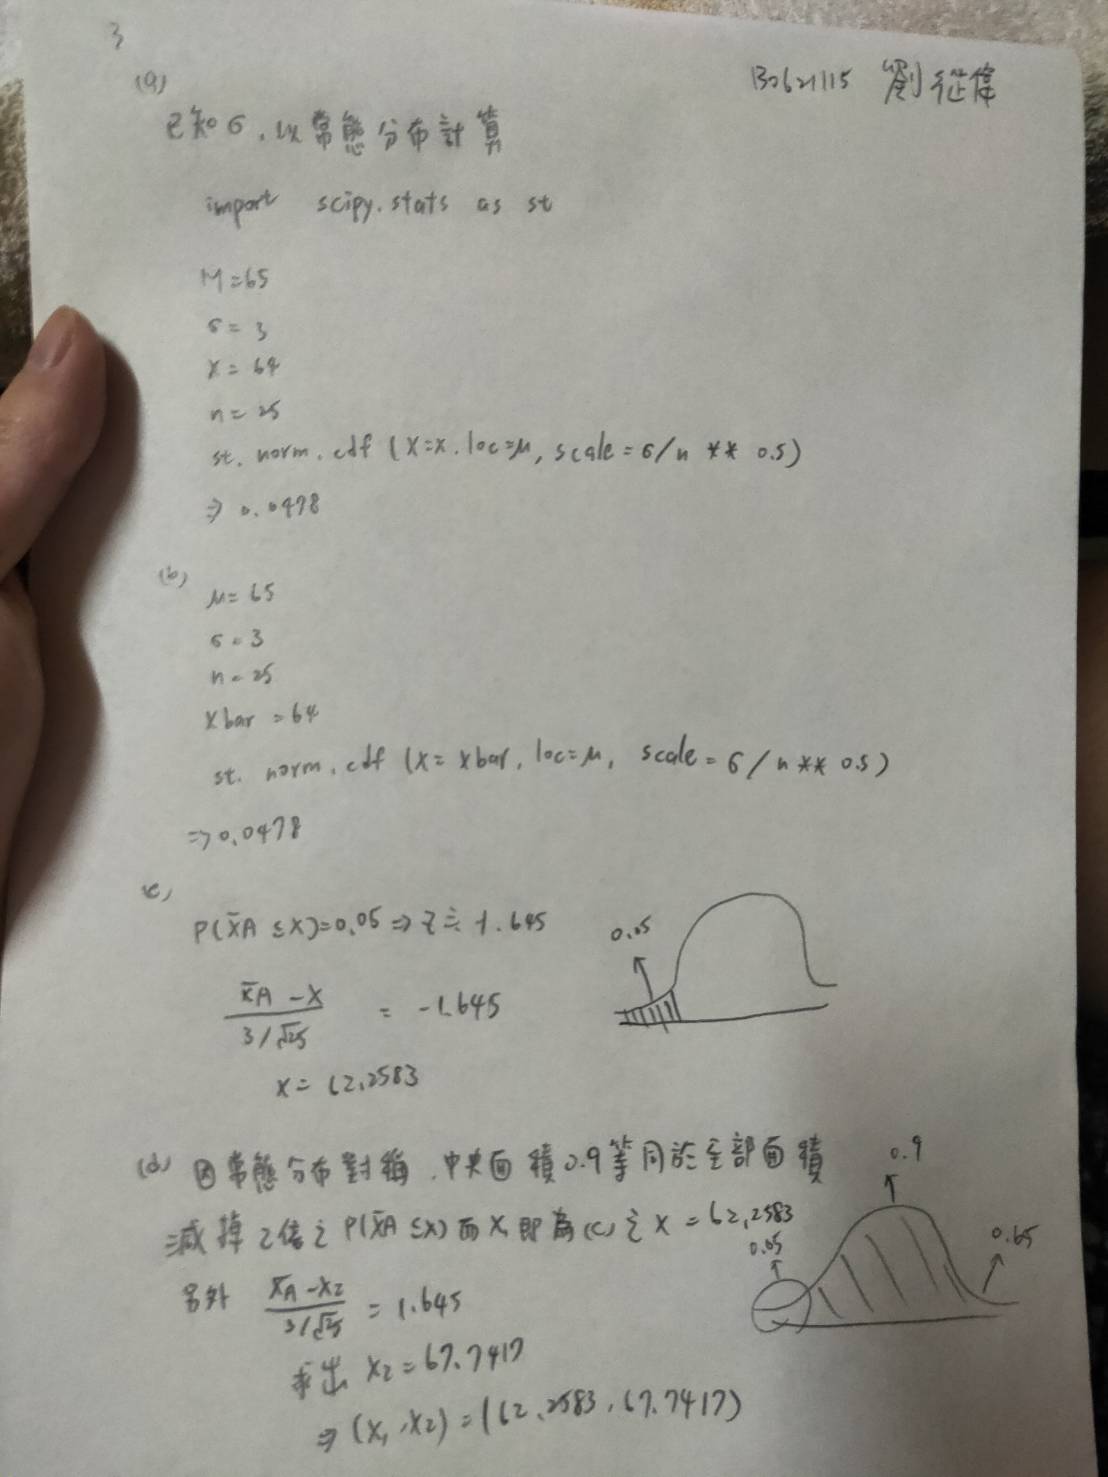 3
(a)
B0621115 劉征偉
已知σ,以常態分布計算
import scipy.stats as st
M=65
σ=3
X=64
n=25
st.norm.cdf (X=x, loc=μ, scale=σ/n ** 0.5)
⇒ 0.0478
(b)
μ=65
σ=3
n=25
xbar=64
st.norm.cdf (X= xbar, loc=μ, scale=σ/n** 0.5)
⇒ 0.0478
(c)
P(X̄A ≤X)=0.05 ⇒ Z≒ -1.645
0.05
X̄A -X / 3/√25 = -1.645
X= 62.2583
(d) 因常態分布對稱,中央面積0.9等同於全部面積
0.9
減掉2倍之P(X̄A ≤X) 而X,即為(c)之X=62.2583
0.05
0.05
另外 X̄A -X2 / 3/√25 = 1.645
求出 X2=67.7417
⇒ (X1,X2)=(62.2583,67.7417)